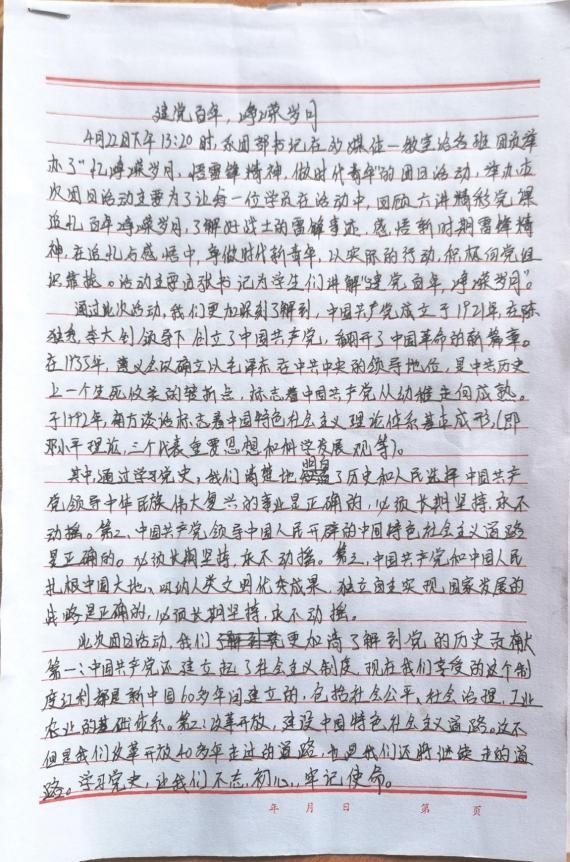 建党百年,峥嵘岁月
4月22日下午13:20时,系团部书记在多媒体一教室给各班团员举
办了"忆峥嵘岁月,悟雷锋精神,做时代青年"的团日活动,举办本
次团日活动主要为了让每一位学员在活动中,回顾六讲精彩党课
追忆百年峥嵘岁月,了解好战士的雷锋事迹,感悟新时期雷锋精
神,在追忆与感悟中,争做时代新青年,以实际的行动,积极向党组
织靠拢。活动主要由张书记为学生们讲解"建党百年,峥嵘岁月"。
通过此次活动,我们更加深刻了解到,中国共产党成立于1921年,在陈
独秀,李大钊领导下创立了中国共产党,翻开了中国革命的新篇章。
在1935年,遵义会议确立以毛泽东在中共中央的领导地位,是中共历史
上一个生死攸关的转折点,标志着中国共产党从幼稚走向成熟。
于1992年,南方谈话标志着中国特色社会主义理论体系基本成形,(即
邓小平理论,三个代表重要思想和科学发展观等)。
其中,通过学习党史,我们清楚地明白了历史和人民选择中国共产
党领导中华民族伟大复兴的事业是正确的,必须长期坚持,永不
动摇。第二、中国共产党领导中国人民开辟的中国特色社会主义道路
是正确的。必须长期坚持,永不动摇。第三,中国共产党和中国人民
扎根中国大地、吸纳人类文明优秀成果,独立自主实现国家发展的
战略是正确的,必须长期坚持,永不动摇。
此次团日活动,我们更加清了解到党的历史贡献
第一:中国共产党还建立起了社会主义制度,现在我们享受的这个制
度红利都是新中国60多年间建立的,包括社会公平、社会治理,工业
农业的基础体系。第二:改革开放,建设中国特色社会主义道路,这不
但是我们改革开放40多年走过的道路,也是我们还将继续走的道
路。学习党史,让我们不忘,初心,牢记使命。
年 月 日 第 页